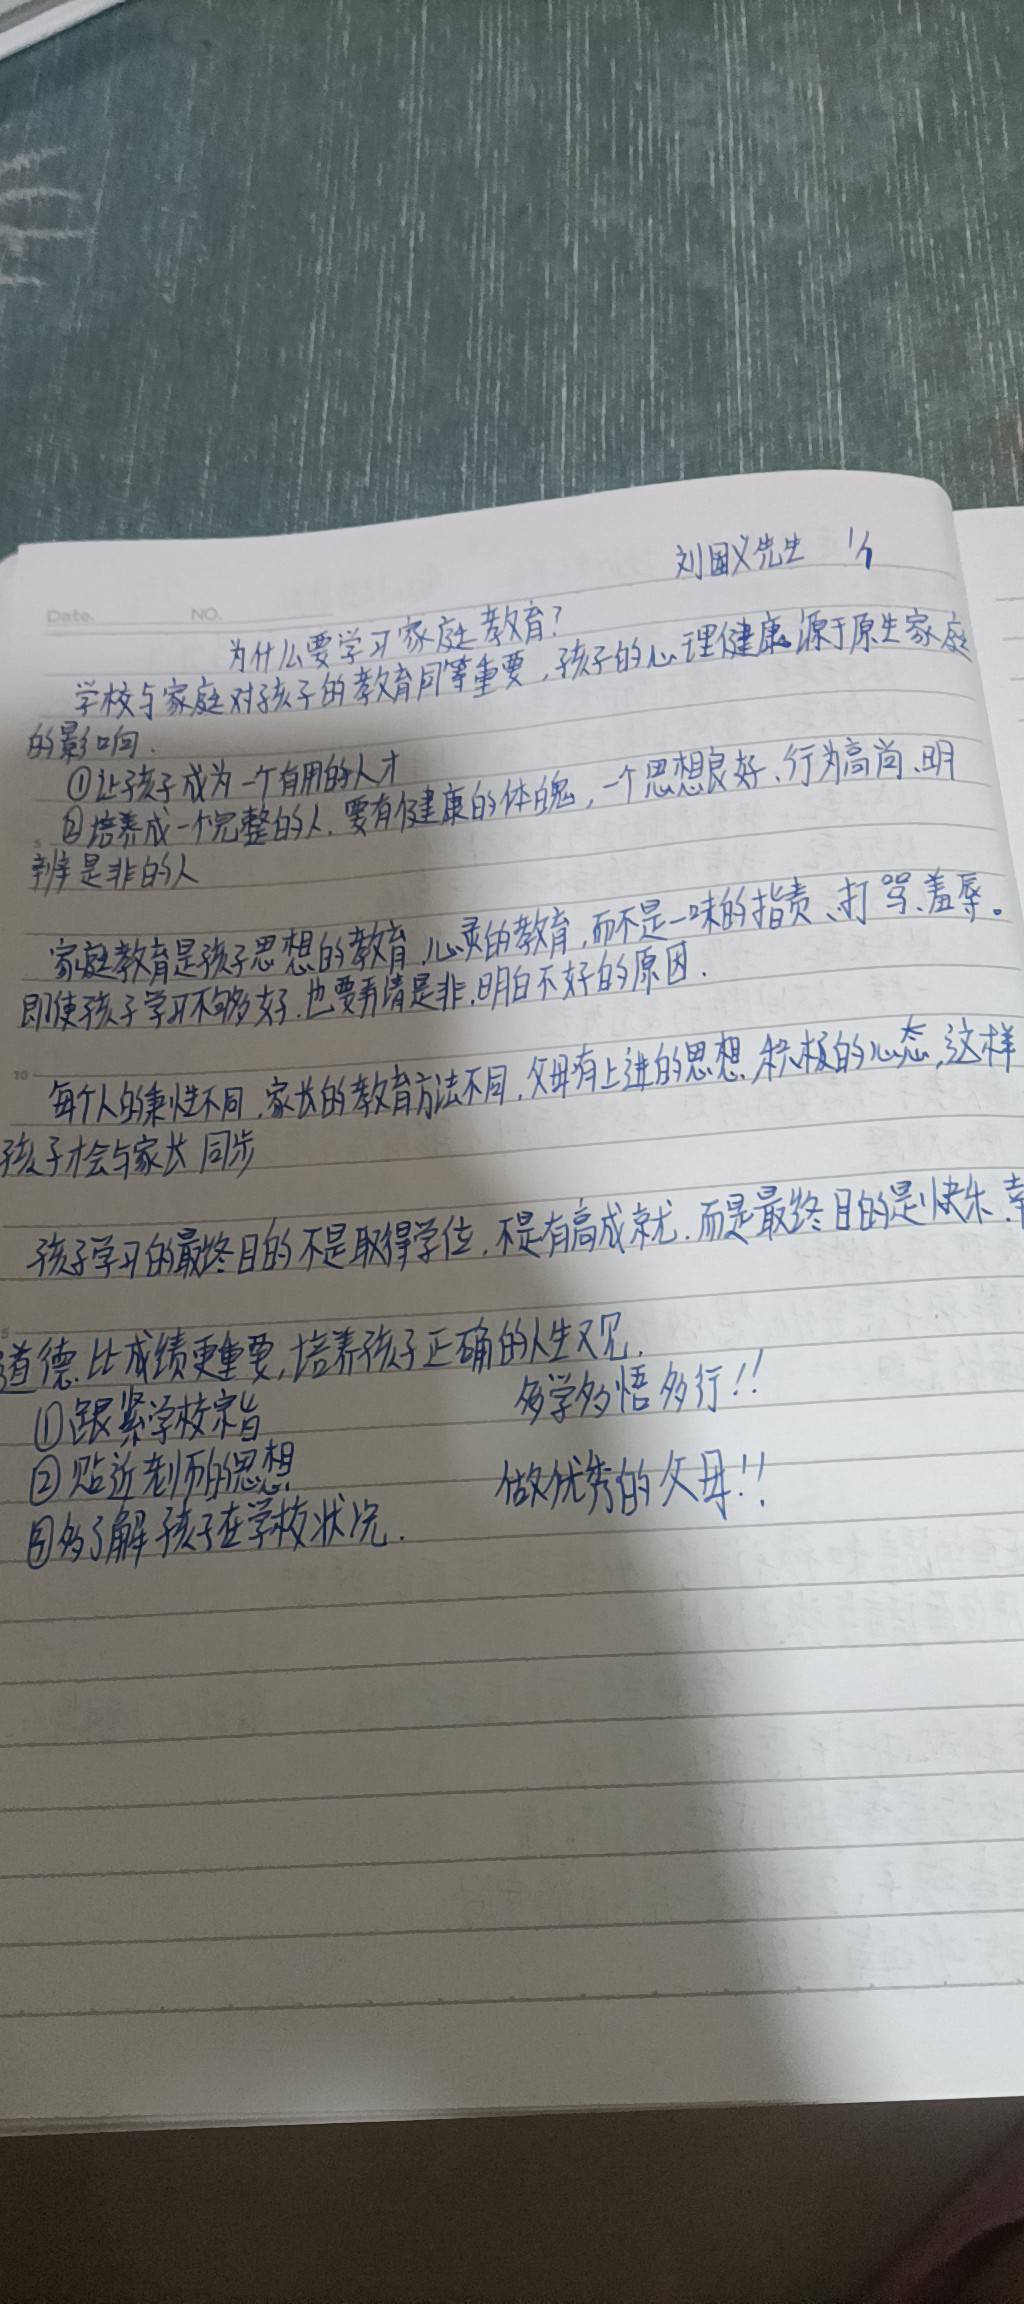 刘国义先生 1/1
Date. NO.
为什么要学习家庭教育?
学校与家庭对孩子的教育同等重要,孩子的心理健康源于原生家庭
的影响.
①让孩子成为一个有用的人才
②培养成一个完整的人,要有健康的体魄,一个思想良好、行为高尚、明
辨是非的人
家庭教育是孩子思想的教育,心灵的教育,而不是一味的指责、打骂、羞辱。
即使孩子学习不够好,也要弄清是非,明白不好的原因.
10
每个人的秉性不同,家长的教育方法不同,父母有上进的思想,积极的心态,这样
孩子才会与家长同步
孩子学习的最终目的不是取得学位,不是有高成就.而是最终目的是快乐.幸
道德.比成绩更重要,培养孩子正确的人生观.
①跟紧学校宗旨 多学多悟多行!!
②贴近老师的思想 做优秀的父母!!
③多了解孩子在学校状况.